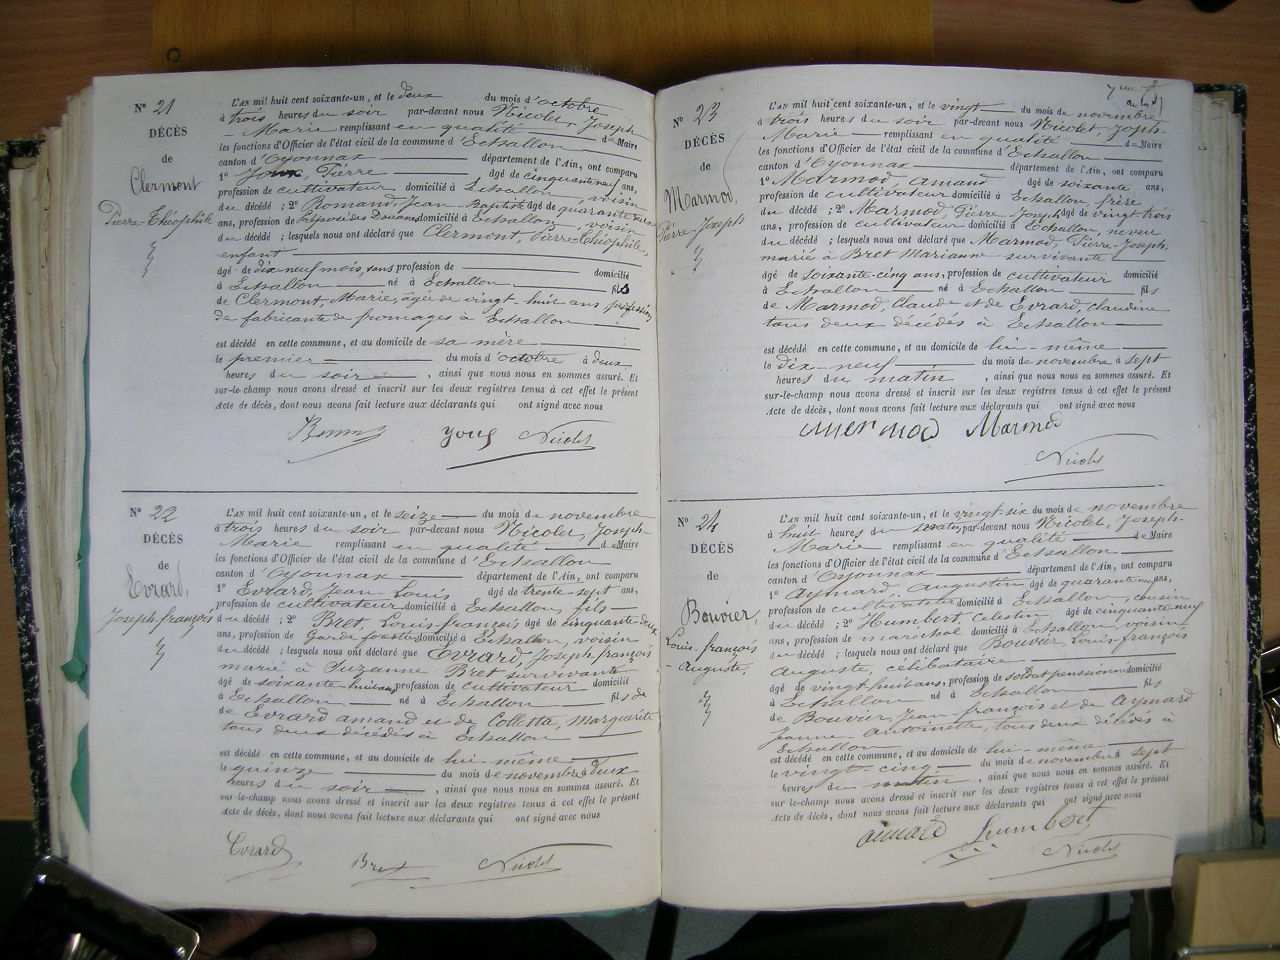 N° 21
DÉCÈS
de
Clermont
Pierre-Théophile
L'AN mil huit cent soixante-un, et le deux du mois d'octobre
à trois heures du soir par-devant nous Nicolet, Joseph-
Marie remplissant en qualité de Maire
les fonctions d'Officier de l'état civil de la commune d'Echallon
canton d'Oyonnax département de l'Ain, ont comparu
1° Joux, Pierre âgé de cinquante neuf ans,
profession de cultivateur, domicilié à Echallon, voisin
du décédé ; 2° Romand, Jean-Baptiste âgé de quarante
ans, profession de Préposé des Douanes domicilié à Echallon, voisin
du décédé ; lesquels nous ont déclaré que Clermont, Pierre-Théophile,
enfant
âgé de dix neuf mois, sans profession de domicilié
à Echallon né à Echallon fils
de Clermont, Marie, âgée de vingt-huit ans profession
de fabricante de fromages à Echallon
est décédé en cette commune, et au domicile de sa mère
le premier du mois d'octobre à deux
heures du soir, ainsi que nous nous en sommes assuré. Et
sur-le-champ nous avons dressé et inscrit sur les deux registres tenus à cet effet le présent
Acte de décès, dont nous avons fait lecture aux déclarants qui ont signé avec nous
youx Nicolet
N° 22
DÉCÈS
de
Evrard,
Joseph-françois
L'AN mil huit cent soixante-un, et le seize du mois de novembre
à trois heures du soir par-devant nous Nicolet, Joseph-
Marie remplissant en qualité de Maire
les fonctions d'Officier de l'état civil de la commune d'Echallon
canton d'Oyonnax département de l'Ain, ont comparu
1° Evrard, Jean-Louis âgé de trente-sept ans,
profession de cultivateur domicilié à Echallon, fils
du décédé ; 2° Bret, Louis-françois âgé de cinquante-deux
ans, profession de Garde forestier domicilié à Echallon, voisin
du décédé ; lesquels nous ont déclaré que Evrard, Joseph-françois
marié à Suzanne Bret survivante
âgé de soixante-huit ans, profession de cultivateur domicilié
à Echallon né à Echallon fils de
de Evrard amand et de Colletta, marguerite
tous deux décédés à Echallon
est décédé en cette commune, et au domicile de lui-même
le quinze du mois de novembre à deux
heures du soir, ainsi que nous nous en sommes assuré. Et
sur-le-champ nous avons dressé et inscrit sur les deux registres tenus à cet effet le présent
Acte de décès, dont nous avons fait lecture aux déclarants qui ont signé avec nous
Evrard Bret Nicolet
N° 23
DÉCÈS
de
Marmod,
Pierre-Joseph
L'AN mil huit cent soixante-un, et le vingt du mois de novembre
à trois heures du soir par-devant nous Nicolet, Joseph-
Marie remplissant en qualité de Maire
les fonctions d'Officier de l'état civil de la commune d'Echallon
canton d'Oyonnax département de l'Ain, ont comparu
1° Marmod, amand âgé de soixante ans,
profession de cultivateur domicilié à Echallon, frère
du décédé ; 2° Marmod, Pierre-Joseph âgé de vingt trois
ans, profession de cultivateur domicilié à Echallon, neveu
du décédé ; lesquels nous ont déclaré que Marmod, Pierre-Joseph
marié à Bret Marianne survivante
âgé de soixante-cinq ans, profession de cultivateur domicilié
à Echallon né à Echallon fils
de Marmod, Claude et de Evrard, Claudine
tous deux décédés à Echallon
est décédé en cette commune, et au domicile de lui-même
le dix-neuf du mois de novembre à sept
heures du matin, ainsi que nous nous en sommes assuré. Et
sur-le-champ nous avons dressé et inscrit sur les deux registres tenus à cet effet le présent
Acte de décès, dont nous avons fait lecture aux déclarants qui ont signé avec nous
mermod Marmod
Nicolet
N° 24
DÉCÈS
de
Bouvier,
Louis-françois
-Auguste,
L'AN mil huit cent soixante-un, et le vingt six du mois de novembre
à huit heures du matin, par-devant nous Nicolet, Joseph-
Marie remplissant en qualité de Maire
les fonctions d'Officier de l'état civil de la commune d'Echallon
canton d'Oyonnax département de l'Ain, ont comparu
1° Aymard, Augustin âgé de quarante ans,
profession de cultivateur domicilié à Echallon, cousin
du décédé ; 2° Humbert, Célestin âgé de cinquante-neuf
ans, profession de maréchal domicilié à Echallon, voisin
du décédé ; lesquels nous ont déclaré que Bouvier, Louis-françois
Auguste, célibataire
âgé de vingt-huit ans, profession de soldat pensionné domicilié
à Echallon né à Echallon fils
de Bouvier, Jean-françois et de Aymard
Jeanne-Antoinette, tous deux décédés à
Echallon
est décédé en cette commune, et au domicile de lui-même
le vingt-cinq du mois de novembre à sept
heures du matin, ainsi que nous nous en sommes assuré. Et
sur-le-champ nous avons dressé et inscrit sur les deux registres tenus à cet effet le présent
Acte de décès, dont nous avons fait lecture aux déclarants qui ont signé avec nous
aimard humbert
Nicolet